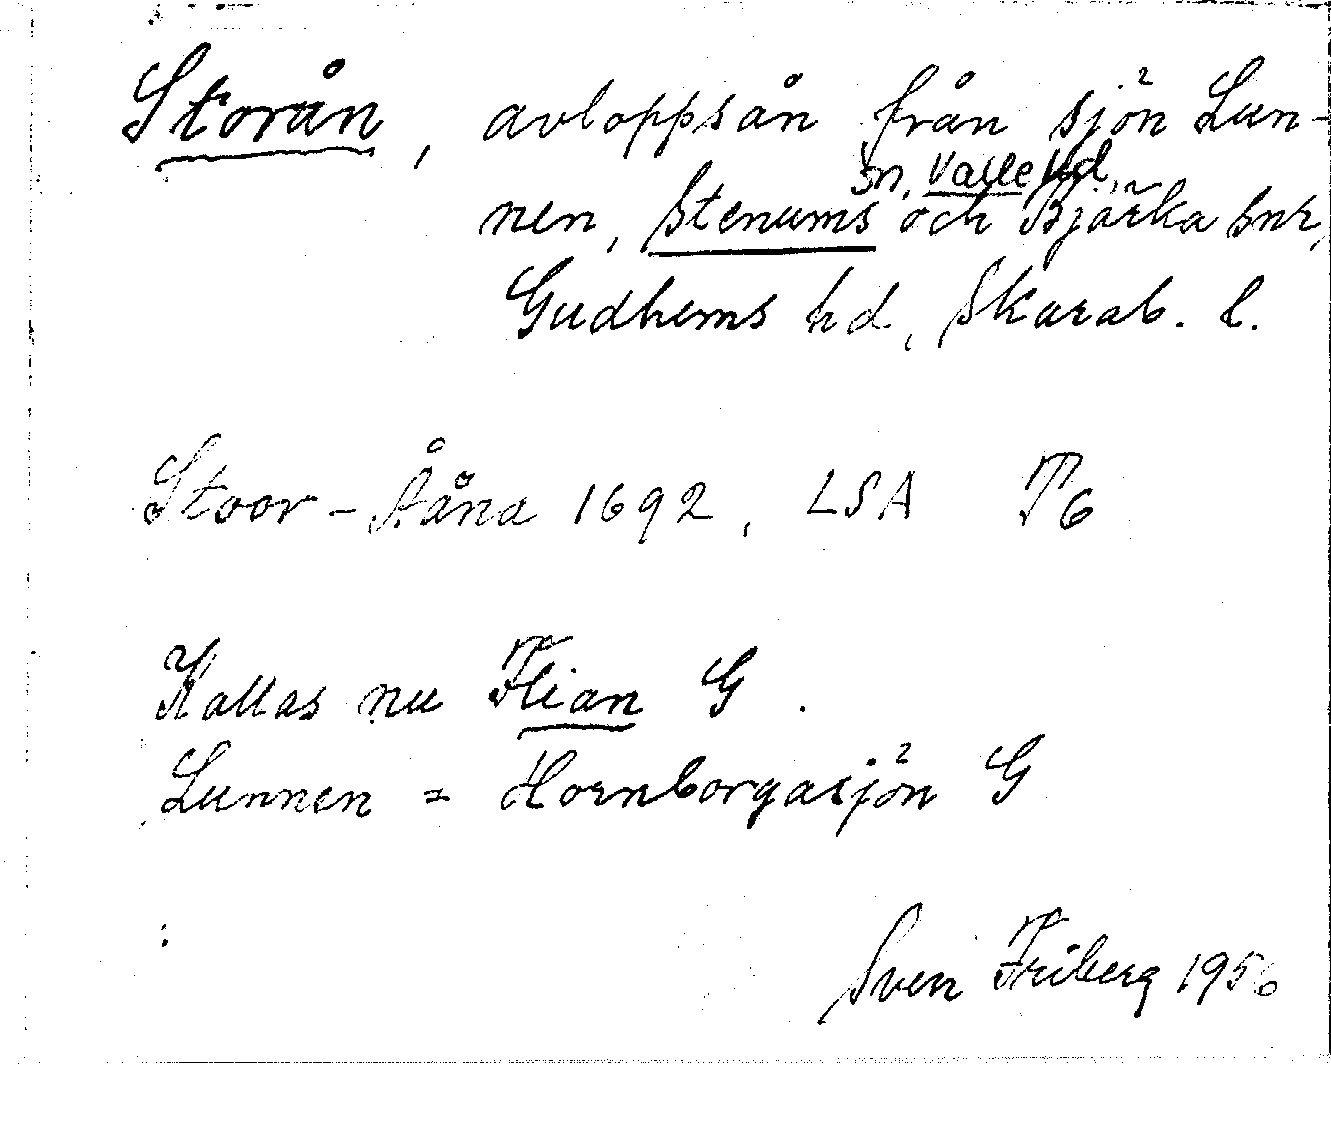 Storån, avloppsån från sjön Lun-
sn, Valle hd,
nen, Stenums och Bjärka snr,
Gudhems hd, Skarab. l.
Stoor-Ååna 1692, LSA T6
Kallas nu Flian G.
Lunnen = Hornborgasjön G
Sven Friberg 1956